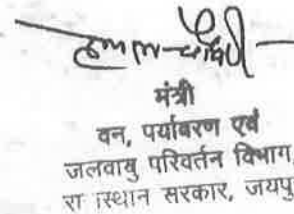 मंत्री
वन, पर्यावरण एवं
जलवायु परिवर्तन विभाग,
सरकार, जयपु